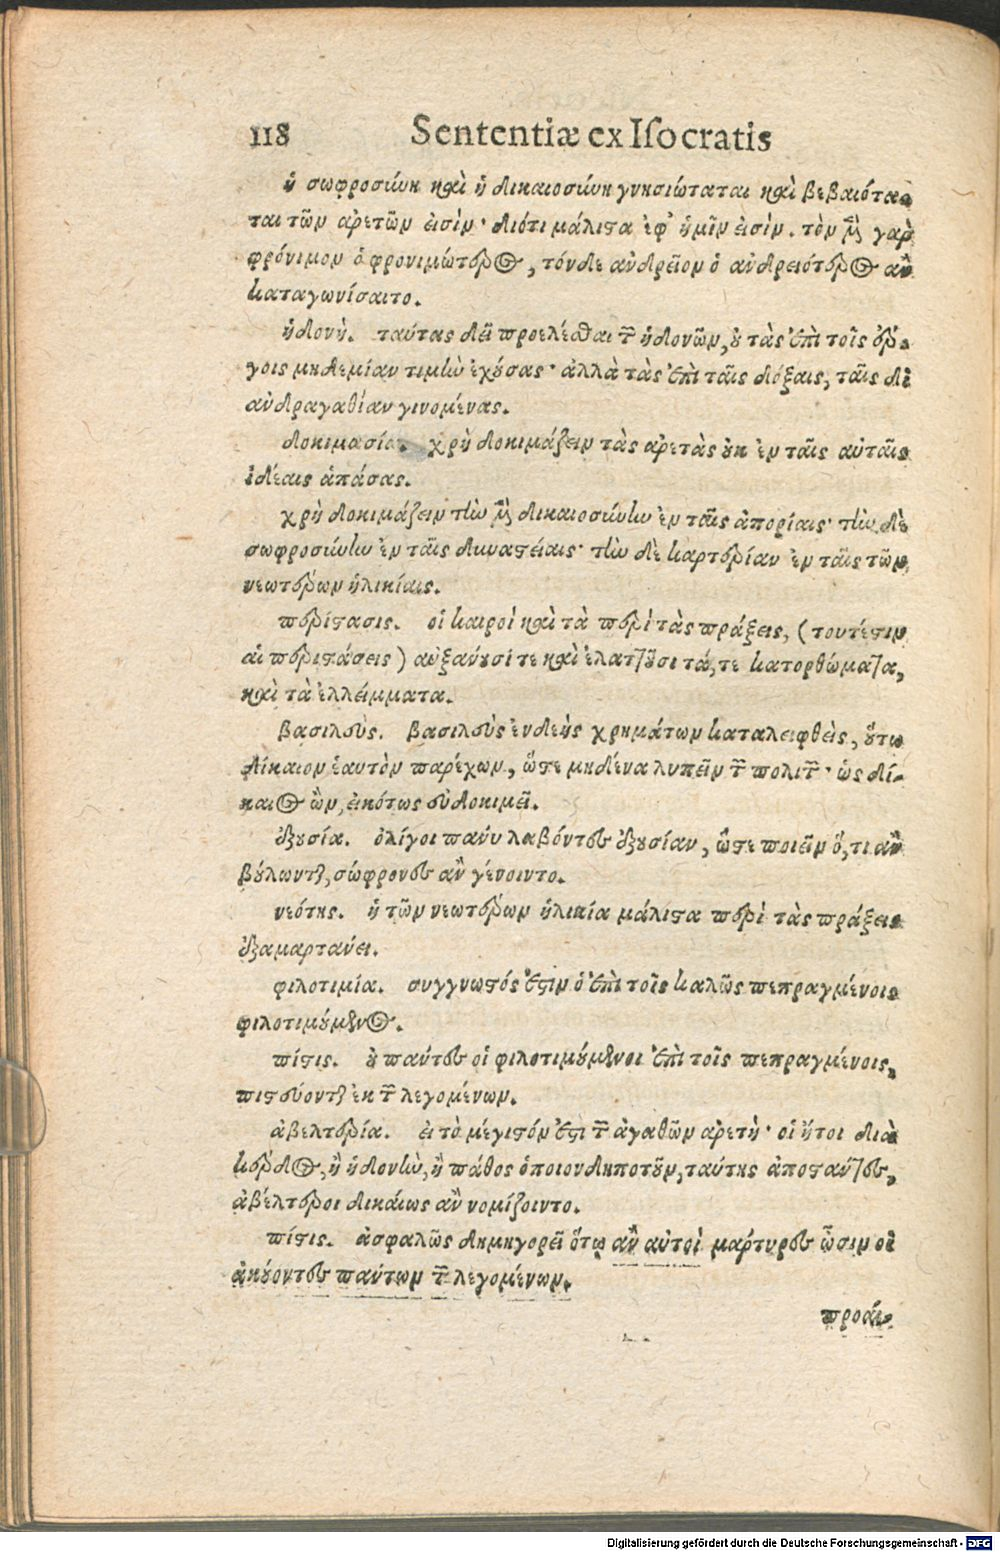 118 Sententiæ ex Iſocratis
ἡ σωφροσύνη καὶ ἡ δικαιοσύνη γνησιώταται καὶ βεβαιότα-
ται τῶν ἀρετῶν εἰσίν· διότι μάλιστα ἐφ᾽ ἡμῖν εἰσίν. τὸν μὲν γαρ
φρόνιμον ὁ φρονιμώτερος, τόνδε ἀνδρεῖον ὁ ἀνδρειότερος ἂν
καταγωνίσαιτο.
ἡδονή. ταύτας δεῖ προελέσθαι τῶν ἡδονῶν, οὐ τὰς ἐπὶ τοῖς ἔρ-
γοις μηδεμίαν τιμὴν ἐχούσας· ἀλλὰ τὰς ἐπὶ ταῖς δόξαις, ταῖς δι᾽
ἀνδραγαθίαν γινομένας.
δοκιμασία. χρὴ δοκιμάζειν τὰς ἀρετὰς οὐκ ἐν ταῖς αὐταῖς
ἰδέαις ἁπάσας.
χρὴ δοκιμάζειν τὴν μὲν δικαιοσύνην ἐν ταῖς ἀπορίαις· τὴν δὲ
σωφροσύνην ἐν ταῖς δυναστείαις· τὴν δὲ καρτερίαν ἐν ταῖς τῶν
νεωτέρων ἡλικίαις.
περίστασις. οἱ καιροὶ καὶ τὰ περὶ τὰς πράξεις, (τουτέστιν
αἱ περιστάσεις) αὐξανουσί τε καὶ ἐλαττοῦσι τά, τε κατορθώματα,
καὶ τὰ ἐλλείμματα.
βασιλεύς. βασιλεὺς ἐνδεὴς χρημάτων καταλειφθεὶς, οὕτω
δίκαιον ἑαυτὸν παρέχων, ὥστε μηδένα λυπεῖν τῶν πολιτῶν· ὡς δί-
καιος ὢν, εἰκότως εὐδοκιμεῖ.
ἐξουσία. ὀλίγοι πανυ λαβόντες ἐξουσίαν, ὥστε ποιεῖν ὅ, τι ἂν
βούλωνται, σώφρονες ἂν γένοιντο.
νεότης. ἡ τῶν νεωτέρων ἡλικία μάλιστα περὶ τὰς πράξεις
ἐξαμαρτανει.
φιλοτιμία. συγγνωστός ἐστιν ὁ ἐπὶ τοῖς καλῶς πεπραγμένοις
φιλοτιμούμενος.
πίστις. οὐ παντες οἱ φιλοτιμούμενοι ἐπὶ τοῖς πεπραγμένοις,
πιστεύονται ἐκ τῶν λεγομένων.
ἀβελτερία. εἰ τὸ μέγιστόν ἐστι τῶν ἀγαθῶν ἀρετή· οἱ ἤτοι διὰ
κέρδος, ἢ ἡδονὴν, ἢ πάθος ὁποιονδηποτοῦν, ταύτης ἀποσταντες,
ἀβέλτεροι δικαίως ἂν νομίζοιντο.
πίστις. ἀσφαλῶς δημηγορεῖ ὅτῳ ἂν αὐτοὶ μάρτυρες ὦσιν οἱ
ἀκούοντες παντων τῶν λεγομένων.
προαι-
Digitalisierung gefördert durch die Deutsche Forschungsgemeinschaft - DFG